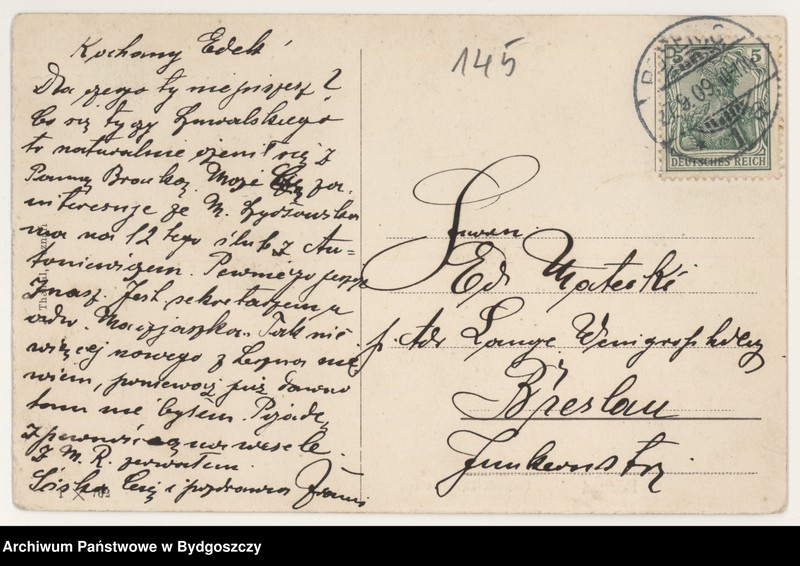 Kochany Edek!
Dla czego ty nie piszesz?
Co się tyczy Suwalskiego
to naturalnie ożenił się z
Panną Bronką. Może Cię za-
interesuje że M.
ma na 12 tego ślub z An-
toniewiczem. Pewnie go jeszcze
znasz. Jest sekretarzem u
adw. Tak nic
więcej nowego z Leszna nie
wiem, ponieważ już dawno
tam nie byłem. Pojadę
z pewnością na wesele.
Z M. R. zerwałem.
Ściska Cię i pozdrawia Franc
145
5 5
DEUTSCHES REICH
9.09.
Ed. Matecki
p. Adr. Lange
Breslau
Junkernstr.
Archiwum Państwowe w Bydgoszczy